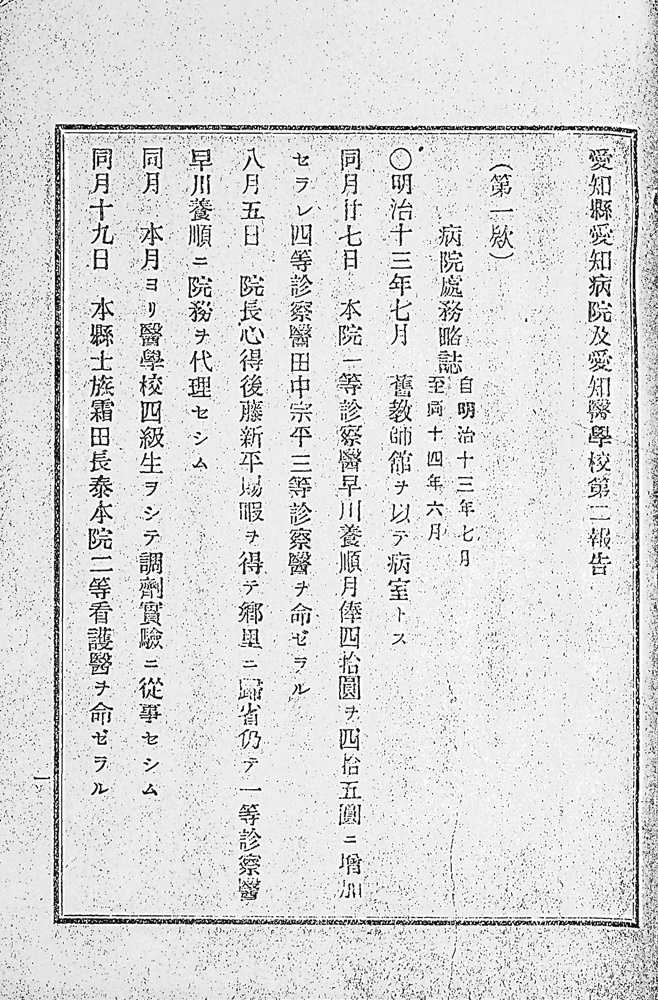 愛知縣愛知病院及愛知醫學校第二報告
(第一欵)
病院處務略誌
自明治十三年七月
至同十四年六月
〇明治十三年七月　舊教師館ヲ以テ病室トス
同月廿七日　本院一等診察醫早川養順月俸四拾圓ヲ四拾五圓ニ増加
セラレ四等診察醫田中宗平三等診察醫ヲ命ゼラル
八月五日　院長心得後藤新平賜暇ヲ得テ郷里ニ歸省仍テ一等診察醫
早川養順ニ院務ヲ代理セシム
同月　本月ヨリ醫學校四級生ヲシテ調劑實驗ニ從事セシム
同月十九日　本縣士族霜田長泰本院二等看護醫ヲ命ゼラル
一